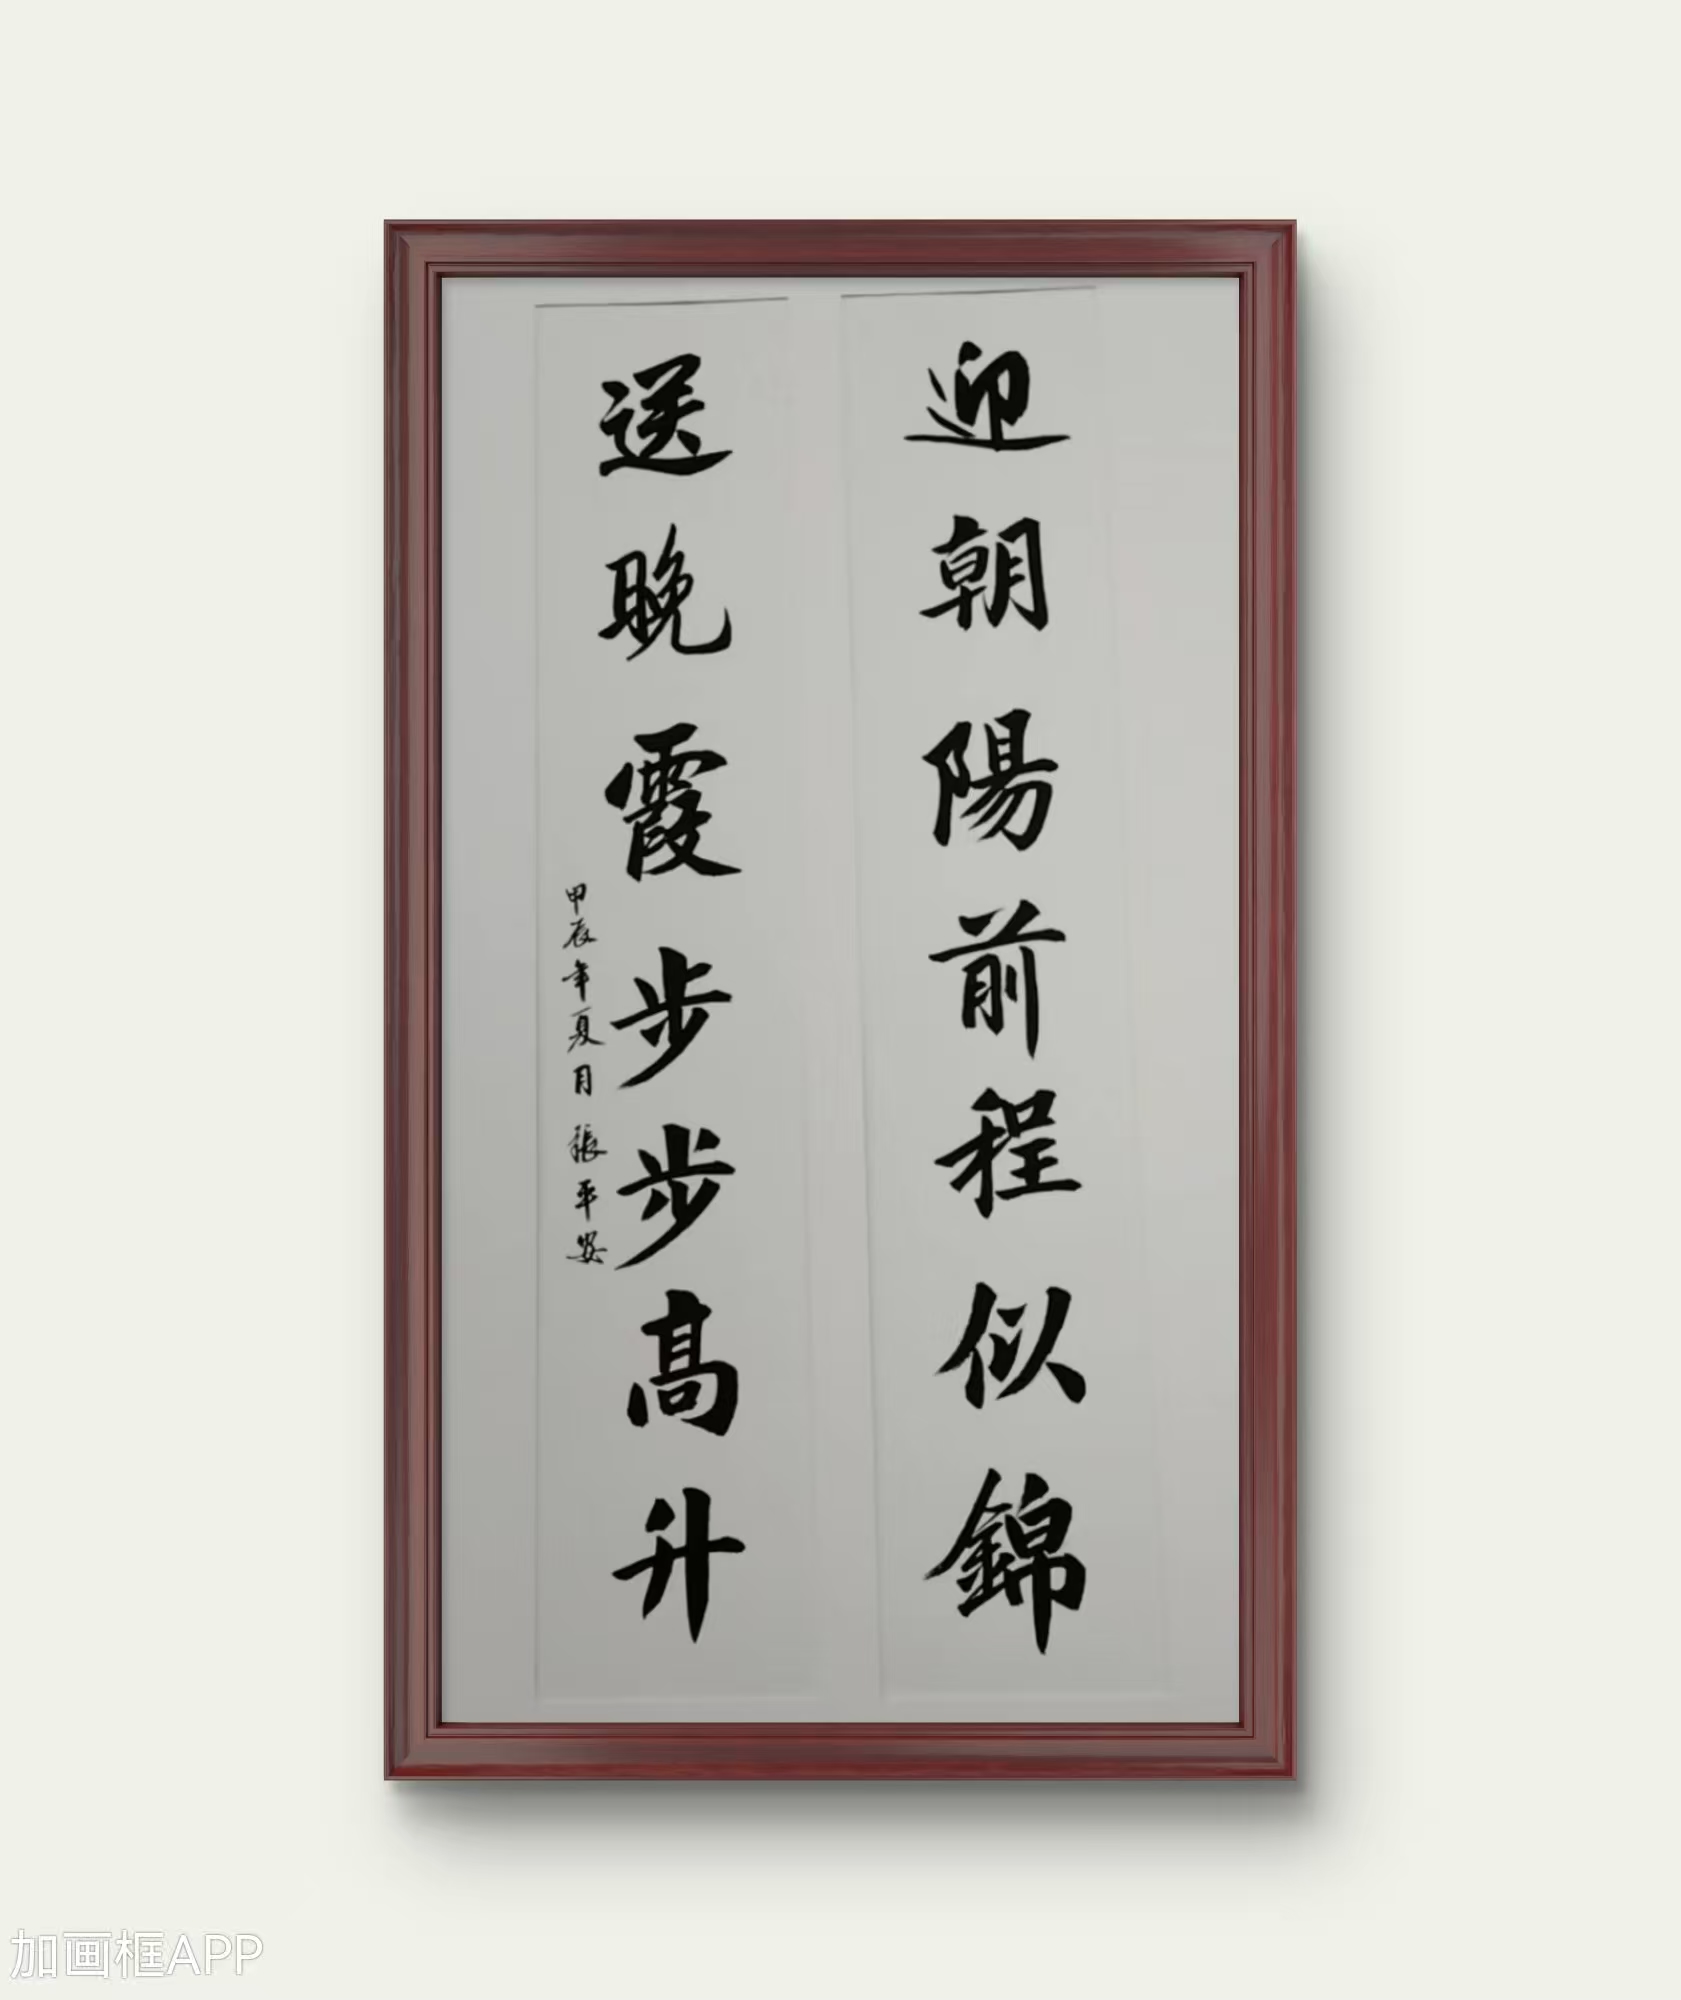 迎朝陽前程似錦
送晚霞步步高升
甲辰年夏月 張平安
加画框APP